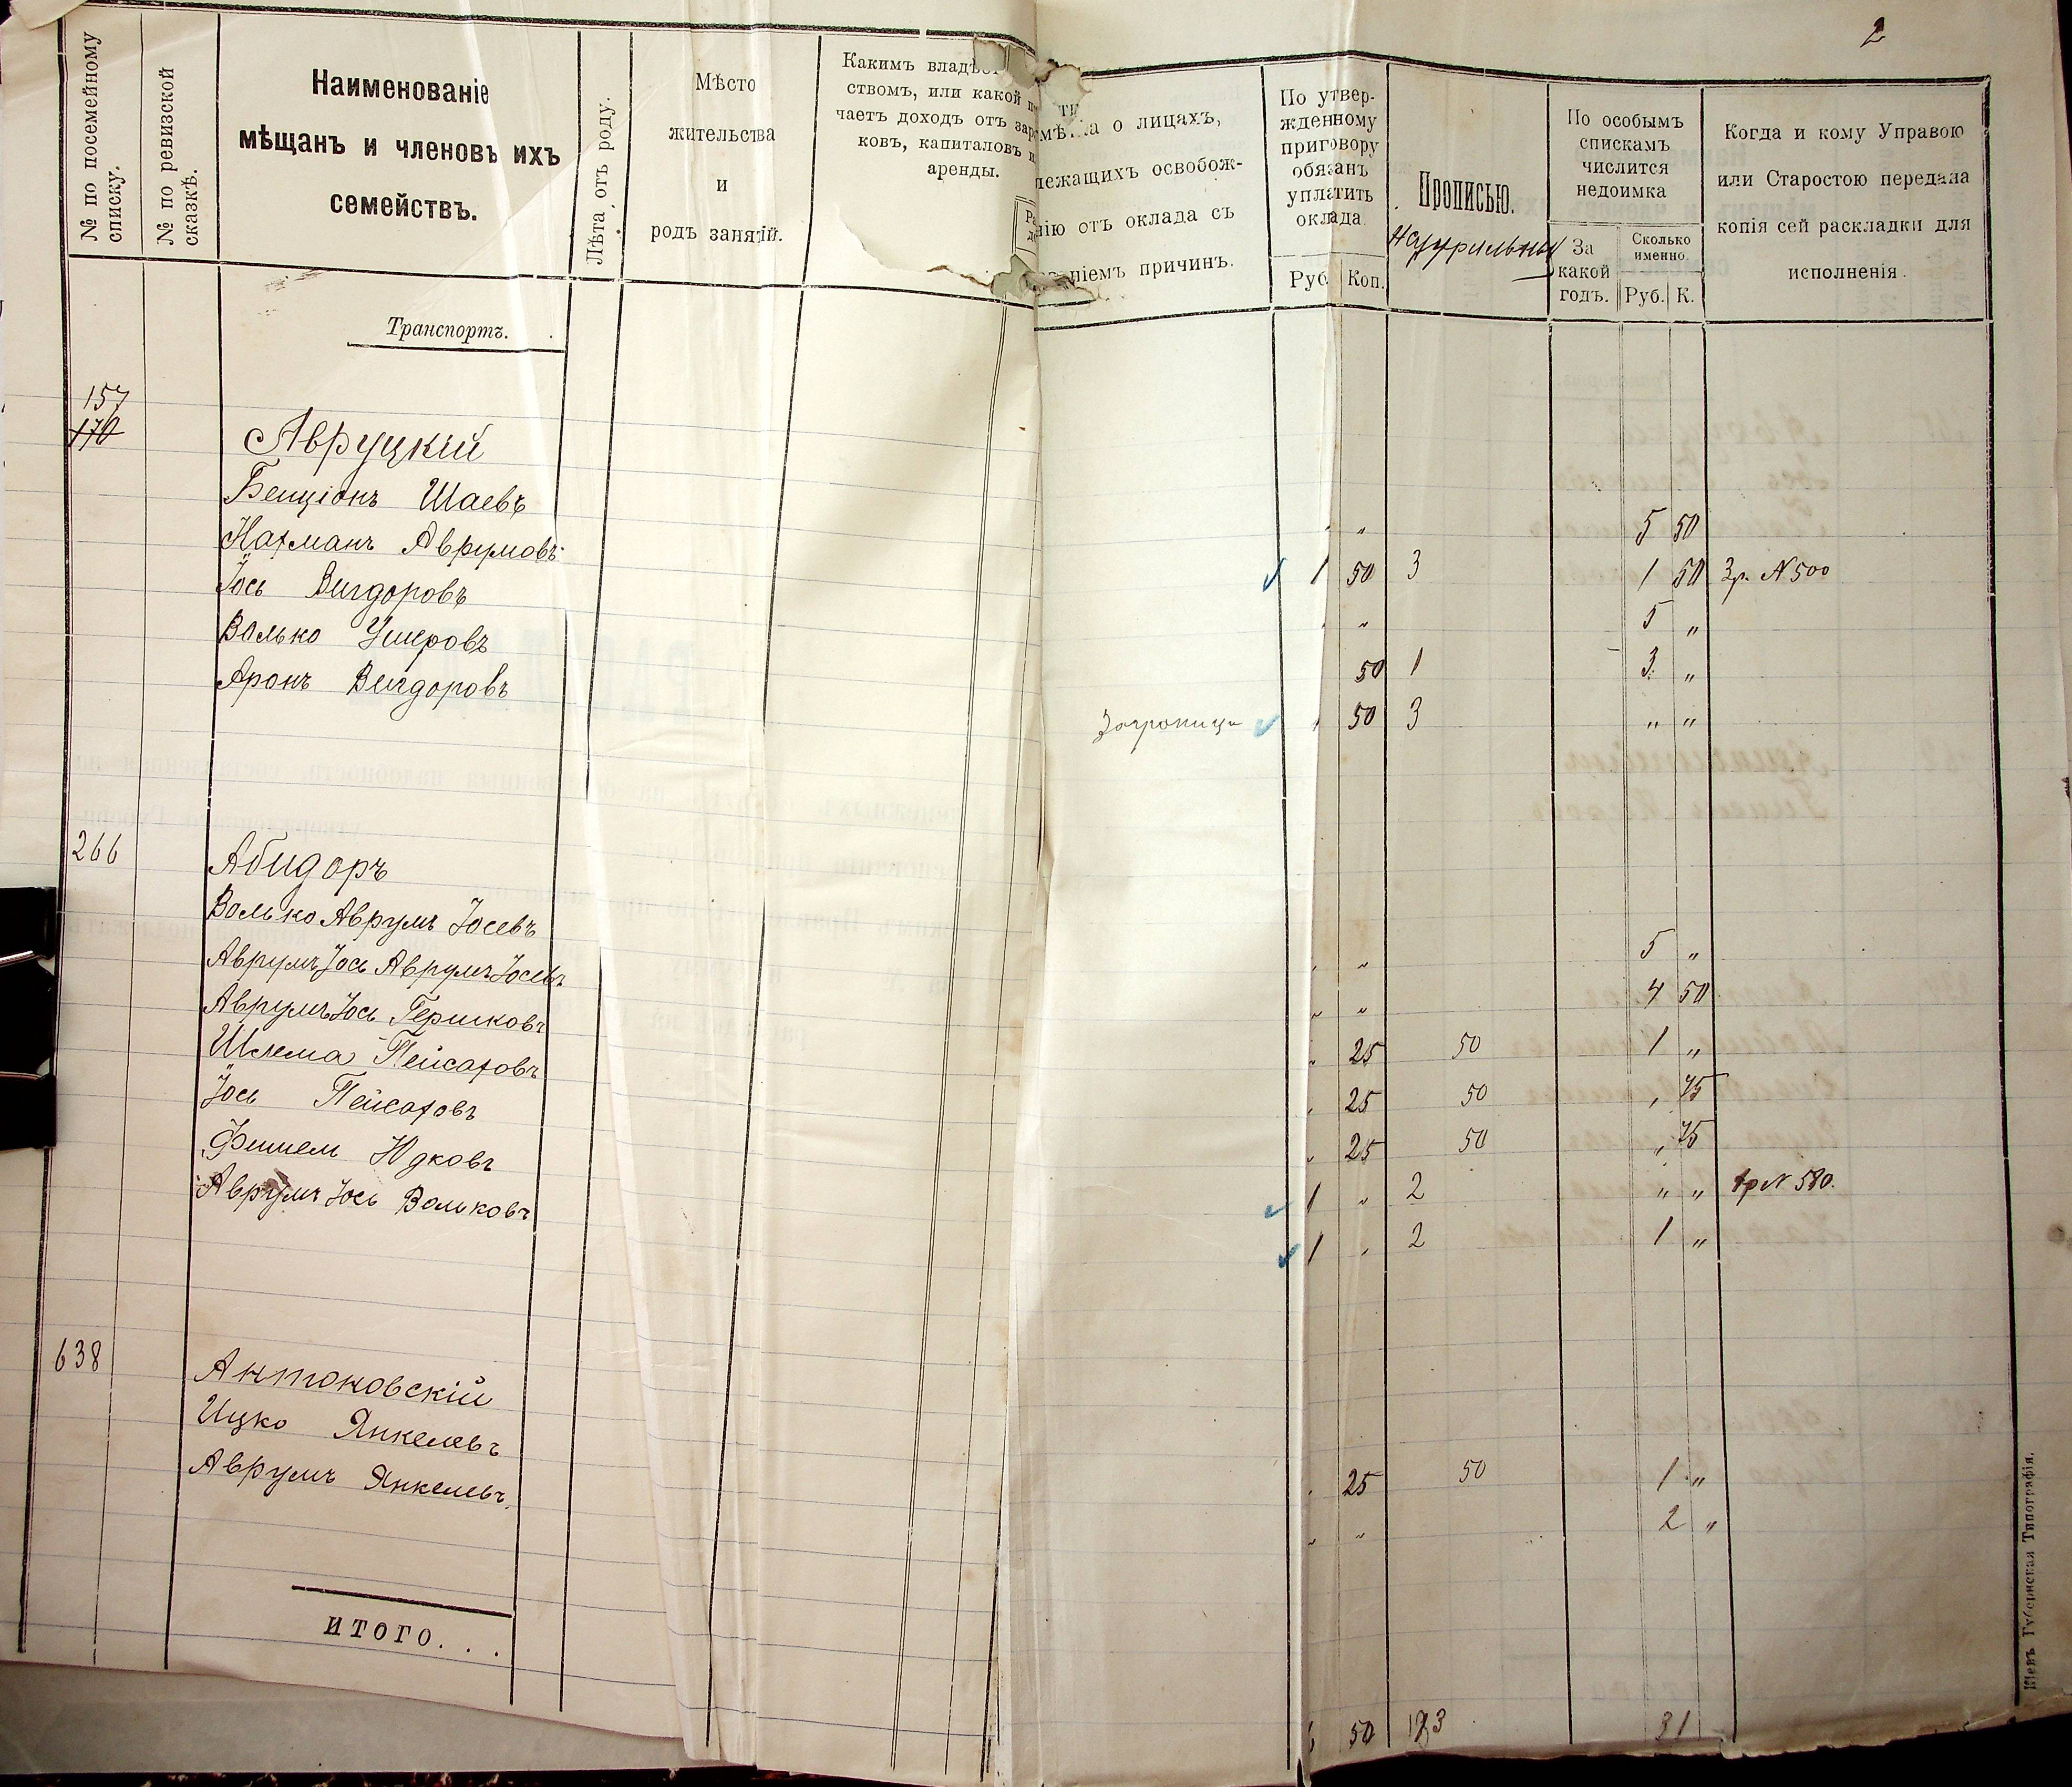 2
№ по посемейному списку.
№ по ревизской сказкѣ.
Наименованіе
мѣщанъ и членовъ ихъ
семействъ.
Лѣта отъ роду.
Мѣсто
жительства
и
родъ занятій.
Какимъ владѣ
ствомъ, или какой
чаетъ доходъ отъ зар
ковъ, капиталовъ и
аренды.
а о лицахъ,
лежащихъ освобож-
нію отъ оклада съ
ніемъ причинъ.
По утвер-
жденному
приговору
обязанъ
уплатить
оклада
Руб. Коп.
Прописью.
По особымъ
спискамъ
числится
недоимка
За
какой
годъ.
Сколько
именно.
Руб. К.
Когда и кому Управою
или Старостою передана
копія сей раскладки для
исполненія.
Транспортъ.
157
170
Авруцкій
Бенціонъ Шаевъ „ 5 50
Нахманъ Аврумовъ 1 50 3 1 50 3р. N 500
Іось Вигдоровъ „ 5 „
Волько Ушеровъ 50 1 3 „
Аронъ Вигдоровъ Заграницу 50 3 „ „
266
Абидоръ
Волько Аврумъ Іосевъ „ „ 5 „
Аврумъ Іось Аврумъ Іосевъ „ „ 4 50
Аврумъ Іось Гершковъ „ 25 50 1 „
Шлема Пейсаховъ „ 25 50 „ 75
Іось Пейсаховъ „ 25 50 „ 75
Фишель Юдковъ 1 „ 2 „ „ 1р N 580.
Аврумъ Іось Вольковъ 1 „ 2 1 „
638
Антоновскій
Ицко Янкелевъ „ 25 50 1 „
Аврумъ Янкелевъ. „ „ 2 „
ИТОГО. . .
50 31
Кіевъ Губернская Типографія.